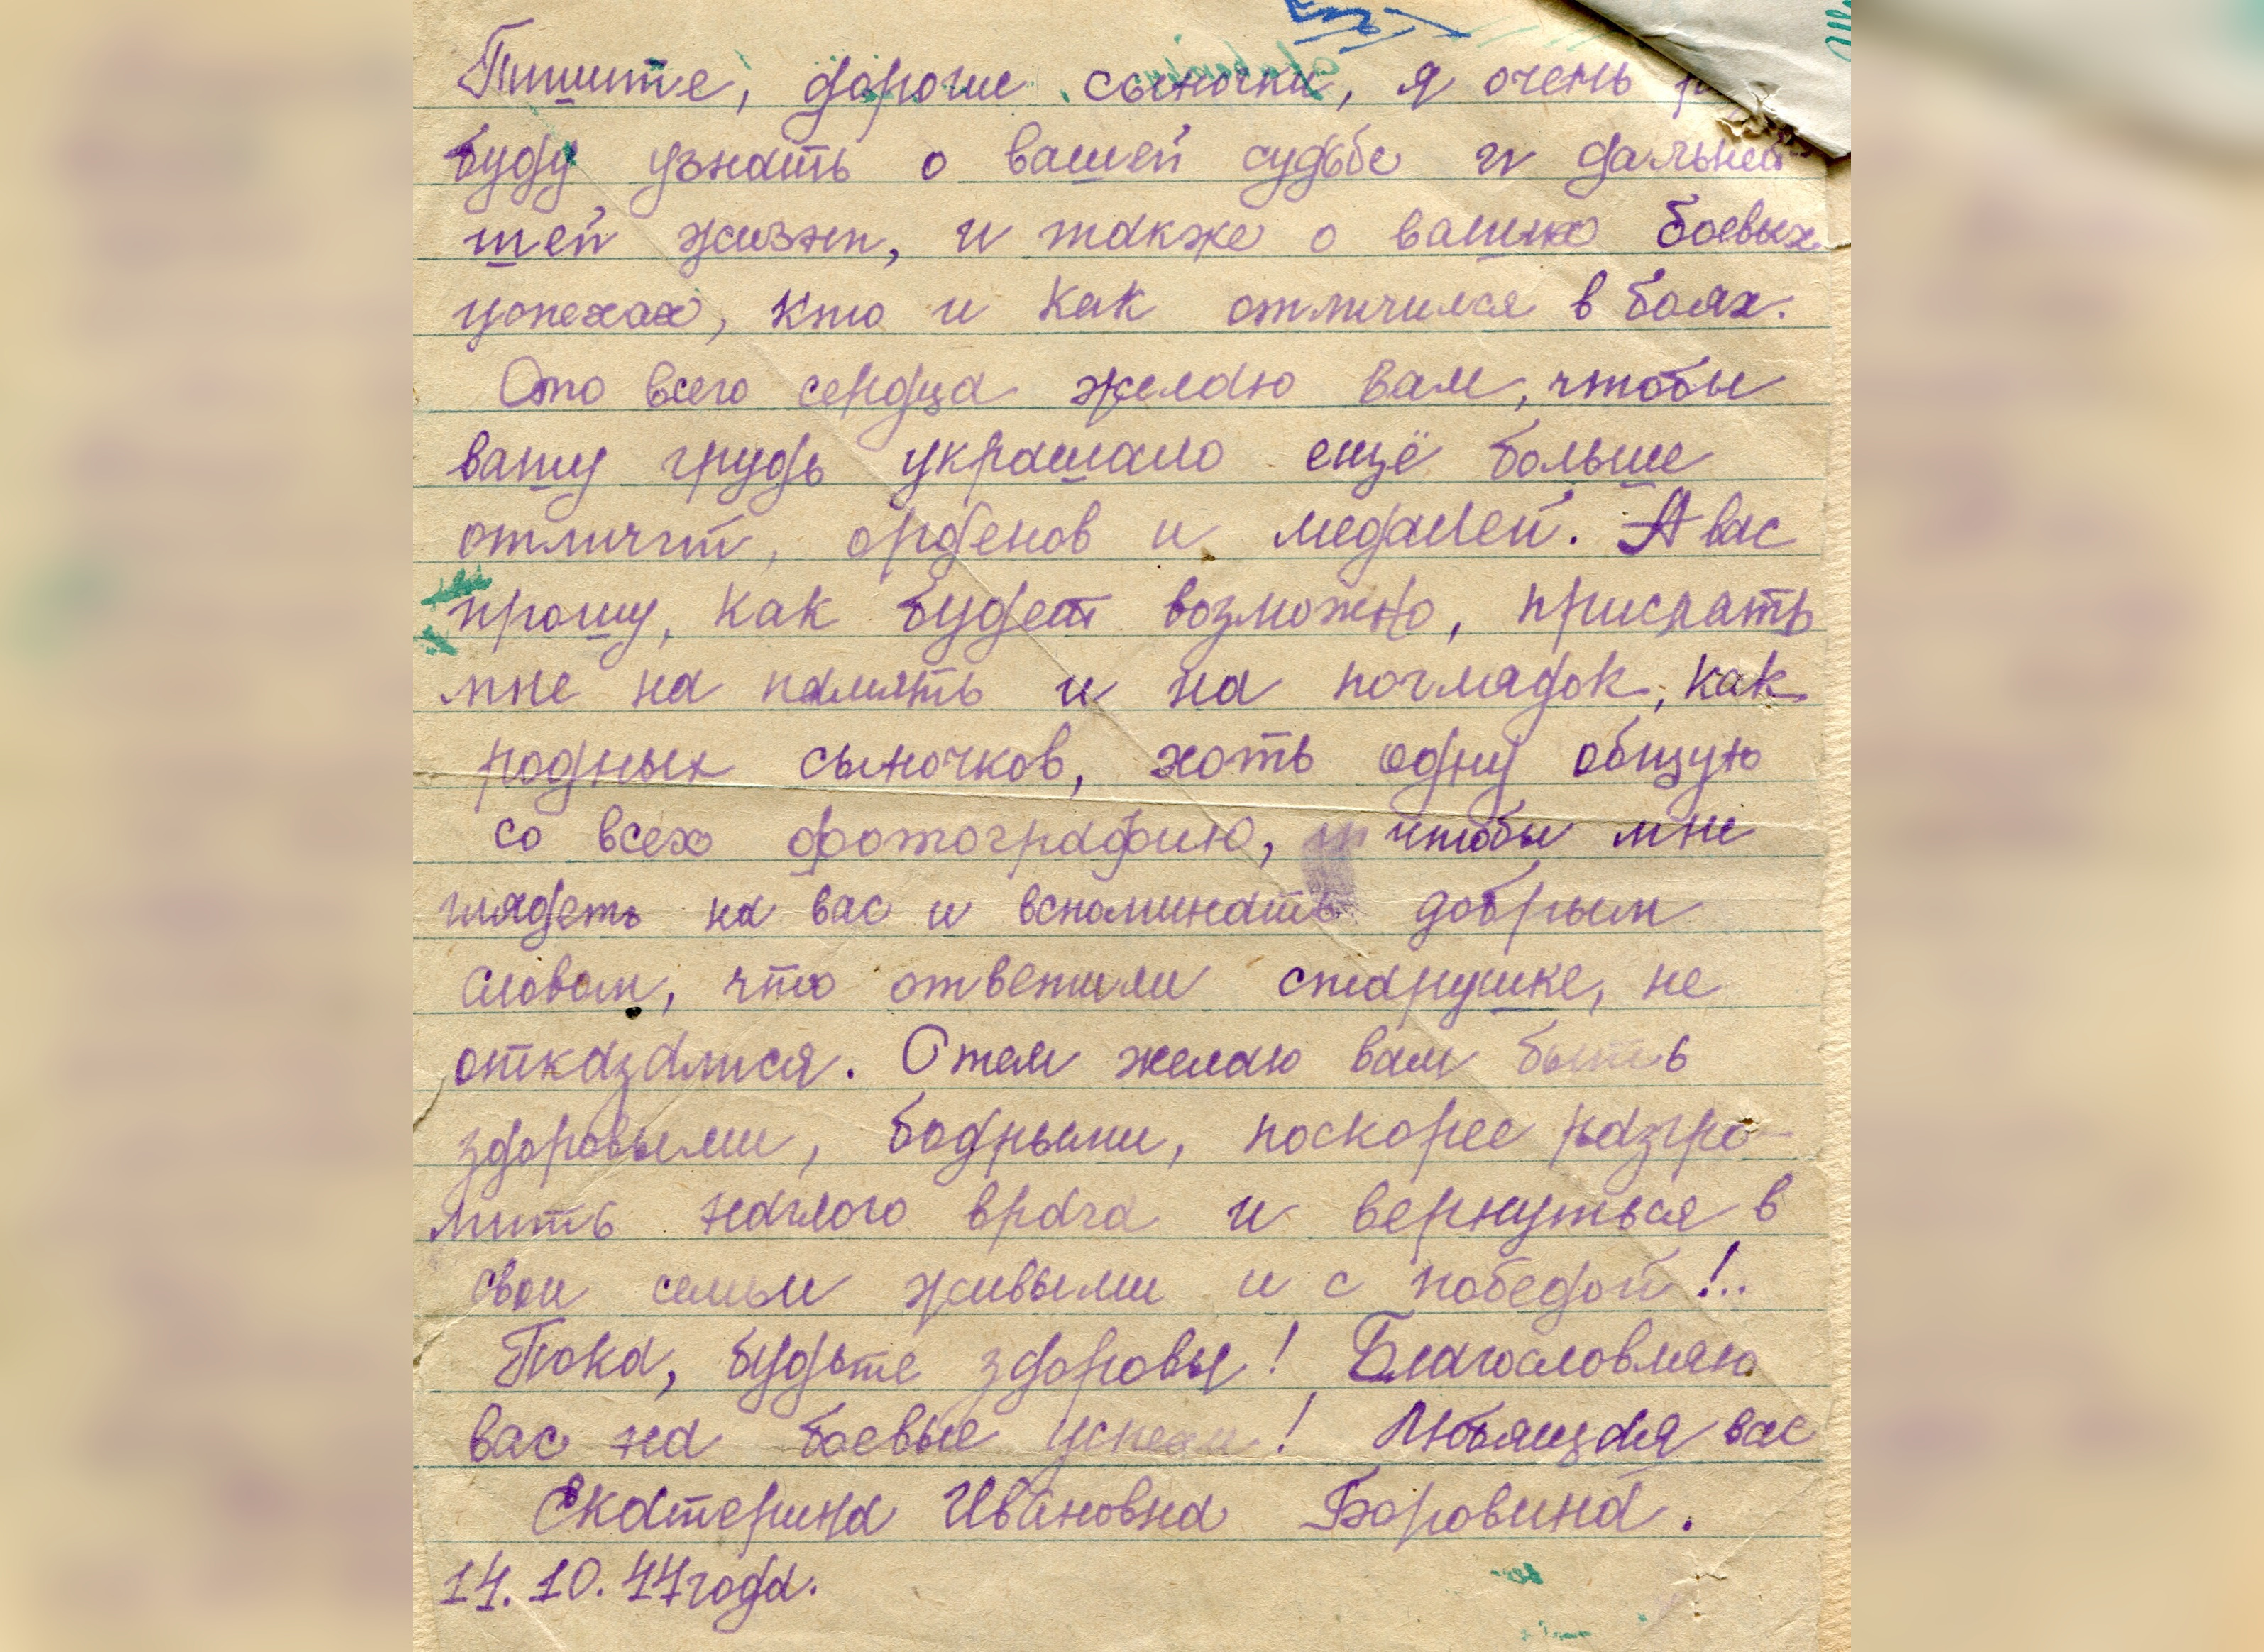 Пишите, дорогие сыночки, я очень
буду узнать о вашей судьбе и дальней-
шей жизни, и также о ваших боевых
успехах, кто и как отличился в боях.
Ото всего сердца желаю вам, чтобы
вашу грудь украшало ещё больше
отличий, орденов и медалей. А вас
прошу, как будет возможно, прислать
мне на память и на поглядок, как
родных сыночков, хоть одну общую
со всех фотографию, чтобы мне
глядеть на вас и вспоминать добрым
словом, что ответили старушке, не
отказалися. С тем желаю вам быть
здоровыми, бодрыми, поскорее разгро-
мить наглого врага и вернуться в
свои семьи живыми и с победой!..
Пока, будьте здоровы! Благословляю
вас на боевые успехи! Любящая вас
Екатерина Ивановна Боровина.
14.10.44 года.